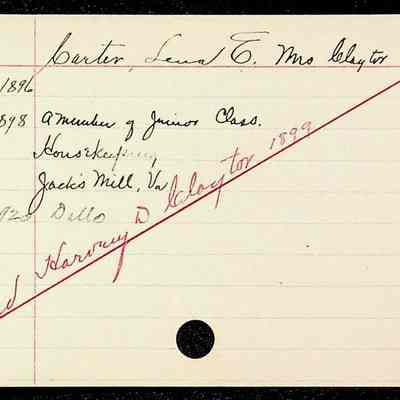 Carter, Lena E. Mrs Claytor
1896
1898 A member of Junior Class.
Housekeeping
Jack's Mill, Va
1920 Ditto
Harvey D Claytor 1899